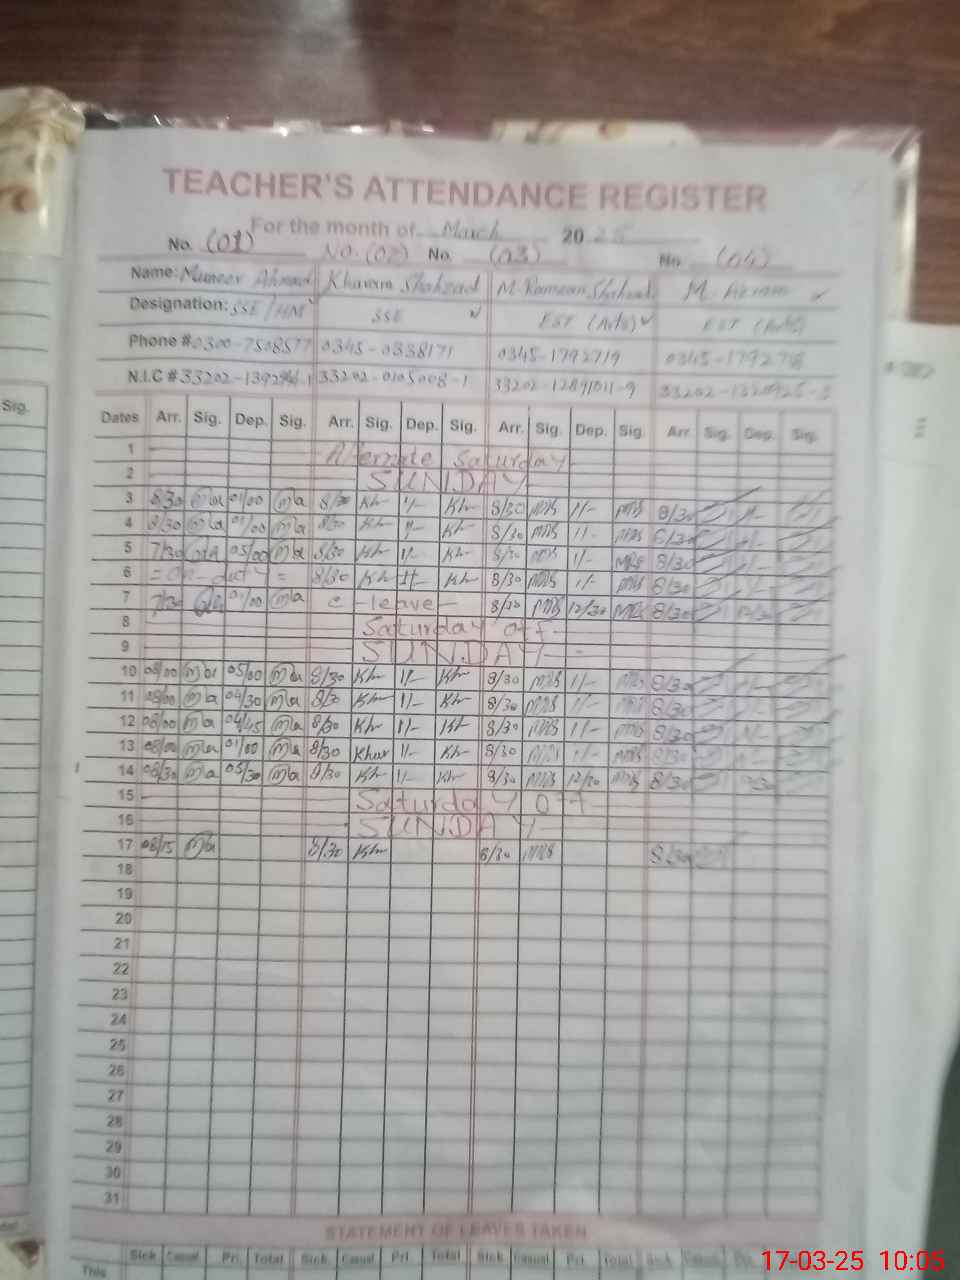 TEACHER'S ATTENDANCE REGISTER
For the month of March 20 25
No. (01) NO. (02) No. (03) No. (04)
Name: Muneer Ahmad Khuram Shahzad M. Ramzan Shahzad M. Akram
Designation: SSE/HM SSE EST (Arts) EST (Arts)
Phone # 0300-7508577 0345-0338171 0345-1792719
N.I.C # 33202-0105008-1
Dates Arr. Sig. Dep. Sig. Arr. Sig. Dep. Sig. Arr. Sig. Dep. Sig. Arr. Sig. Dep. Sig.
1 Alternate Saturday
2 SUNDAY
3 8/30 Ma 01/00 Ma 8/30 Kh 1/- Kh 8/30 MRS 1/- MRS 8/30
4 8/30 Ma 01/00 Ma 8/30 Kh 1/- Kh 8/30 MRS 1/- MRS 8/30
5 7/30 05/00 Ma 8/30 Kh 1/- Kh 8/30 MRS 1/- MRS 8/30
6 = On-duty = 8/30 Kh 1/- Kh 8/30 MRS 1/- MRS 8/30
7 7/30 01/00 Ma C-leave 8/30 MRS 12/30 MRS 8/30 12/30
8 Saturday off
9 SUNDAY
10 08/00 Ma 05/00 Ma 8/30 Kh 1/- Kh 8/30 MRS 1/- MRS 8/30
11 08/00 Ma 04/30 Ma 8/30 Kh 1/- Kh 8/30 MRS 1/- MRS 8/30
12 08/00 Ma 04/45 Ma 8/30 Kh 1/- Kh 8/30 MRS 1/- MRS 8/30
13 08/00 Ma 01/00 Ma 8/30 Khur 1/- Kh 8/30 MRS 1/- MRS 8/30
14 08/30 Ma 05/30 Ma 8/30 Kh 1/- Kh 8/30 MRS 12/30 MRS 8/30 12/30
15 Saturday off
16 SUNDAY
17 08/15 Ma 8/30 Kh 8/30 MRS 8/30
18
19
20
21
22
23
24
25
26
27
28
29
30
31
STATEMENT OF LEAVES TAKEN
Sick Casual Pri. Total Sick. Casual Pri. Total Sick Casual Pri. Total Sick Casual
This
Sig.
17-03-25 10:05